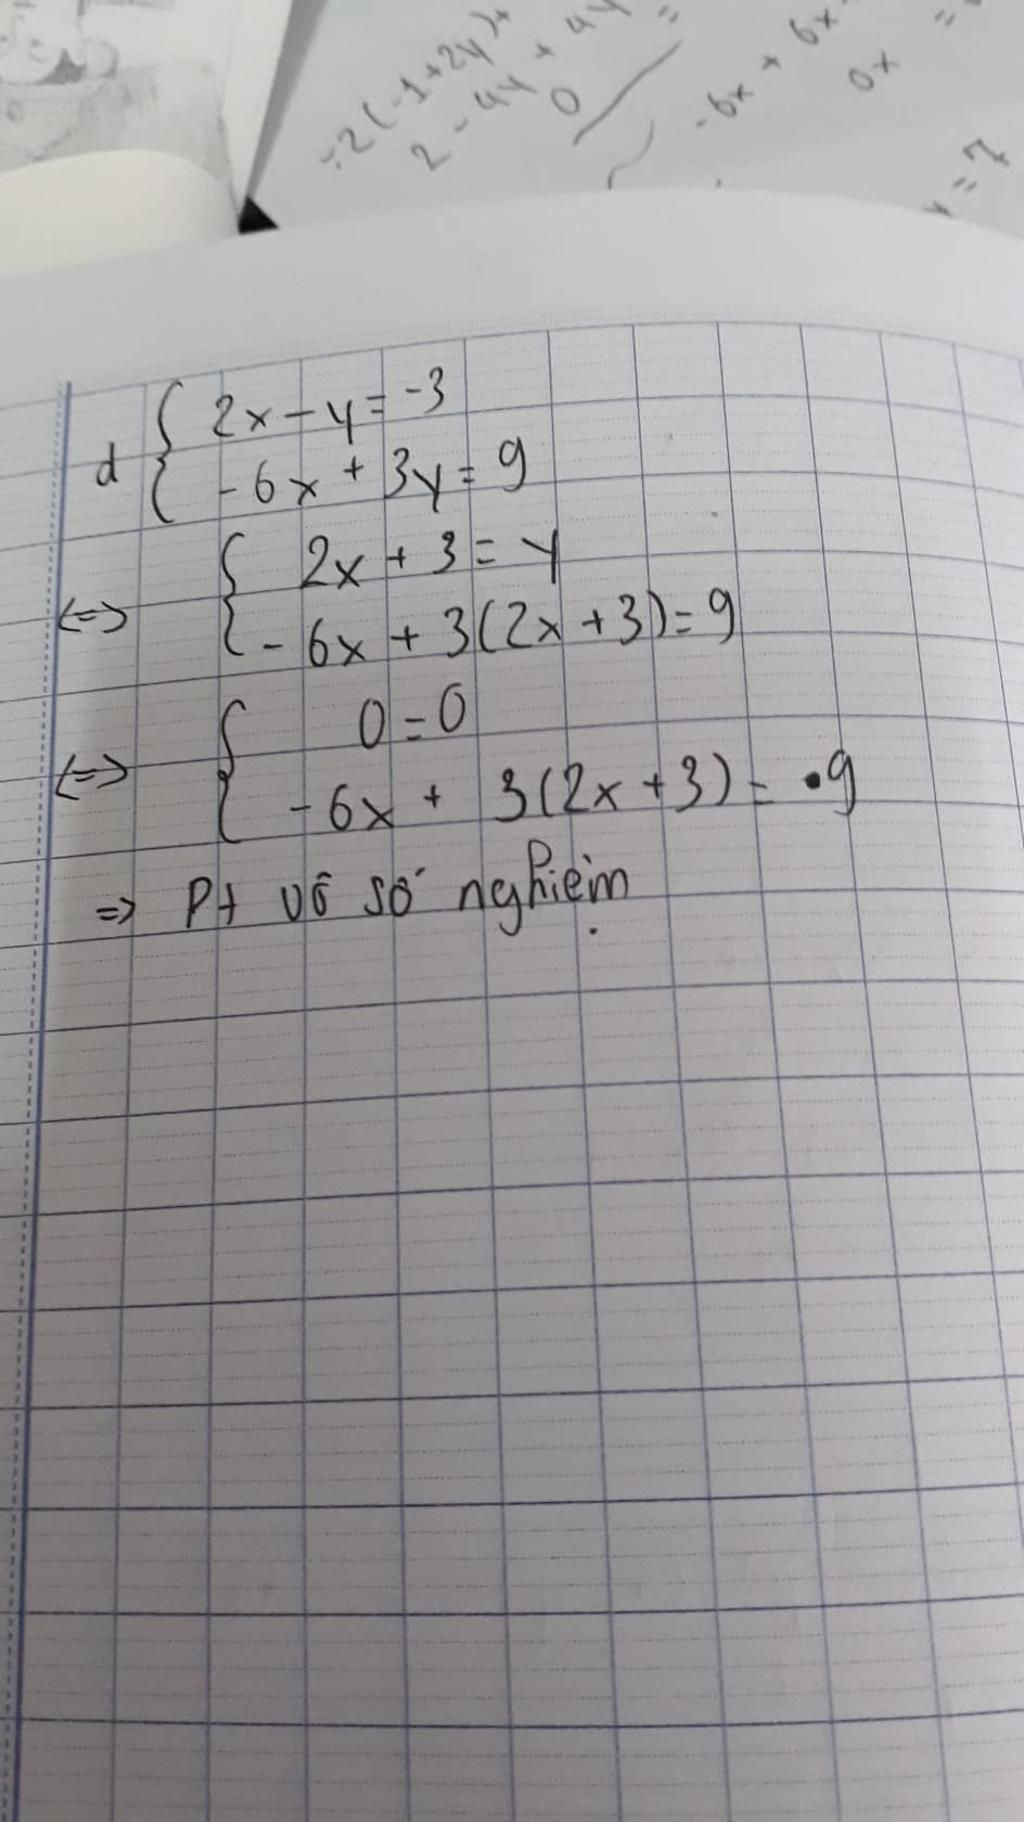 -2(-1+2y)+
2 - 4y + 4y =
0
-6x + 6x
0x =
= 7
d { 2x - y = -3
-6x + 3y = 9
<=> { 2x + 3 = y
-6x + 3(2x + 3) = 9
<=> { 0 = 0
-6x + 3(2x + 3) = 9
=> Pt vô số nghiệm